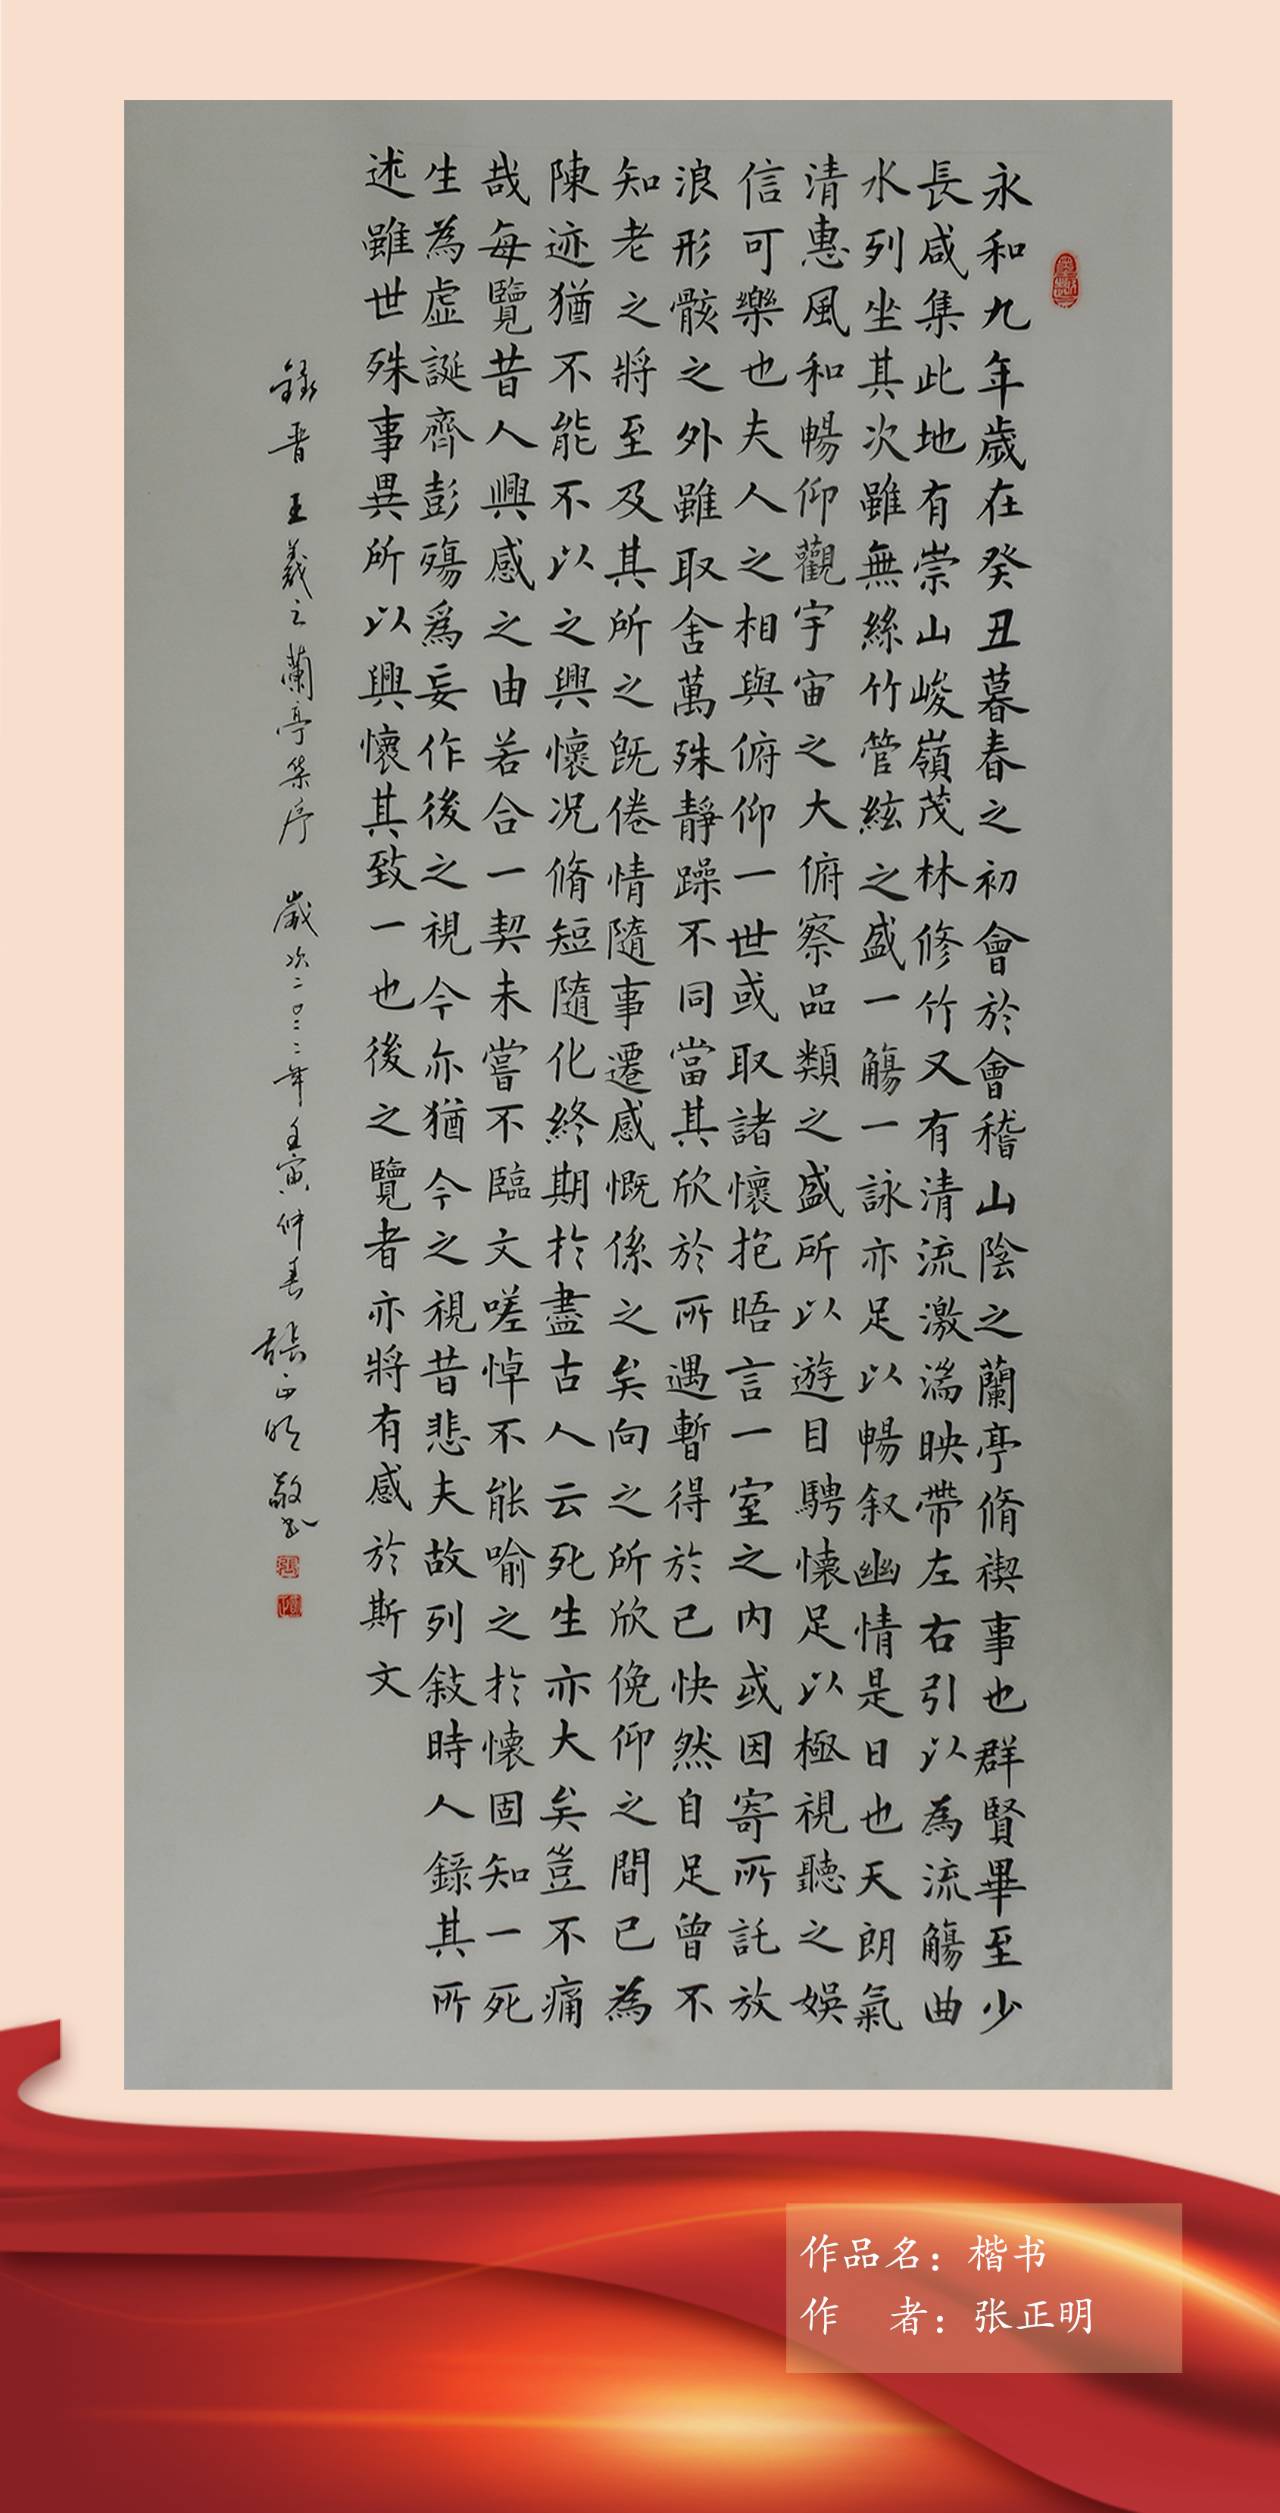 永和九年歲在癸丑暮春之初會於會稽山陰之蘭亭脩禊事也群賢畢至少
長咸集此地有崇山峻嶺茂林修竹又有清流激湍映帶左右引以為流觴曲
水列坐其次雖無絲竹管絃之盛一觴一詠亦足以暢叙幽情是日也天朗氣
清惠風和暢仰觀宇宙之大俯察品類之盛所以遊目騁懐足以極視聽之娛
信可樂也夫人之相與俯仰一世或取諸懷抱晤言一室之内或因寄所託放
浪形骸之外雖取舍萬殊靜躁不同當其欣於所遇暫得於己快然自足曾不
知老之將至及其所之既倦情隨事遷感慨係之矣向之所欣俛仰之間已為
陳迹猶不能不以之興懷况脩短隨化終期於盡古人云死生亦大矣豈不痛
哉每覽昔人興感之由若合一契未嘗不臨文嗟悼不能喻之於懐固知一死
生為虛誕齊彭殤爲妄作後之視今亦猶今之視昔悲夫故列敍時人錄其所
述雖世殊事異所以興懷其致一也後之覽者亦將有感於斯文
錄晋王羲之蘭亭集序 歲次二〇二二年壬寅仲春張正明敬書
作品名：楷书
作 者：张正明